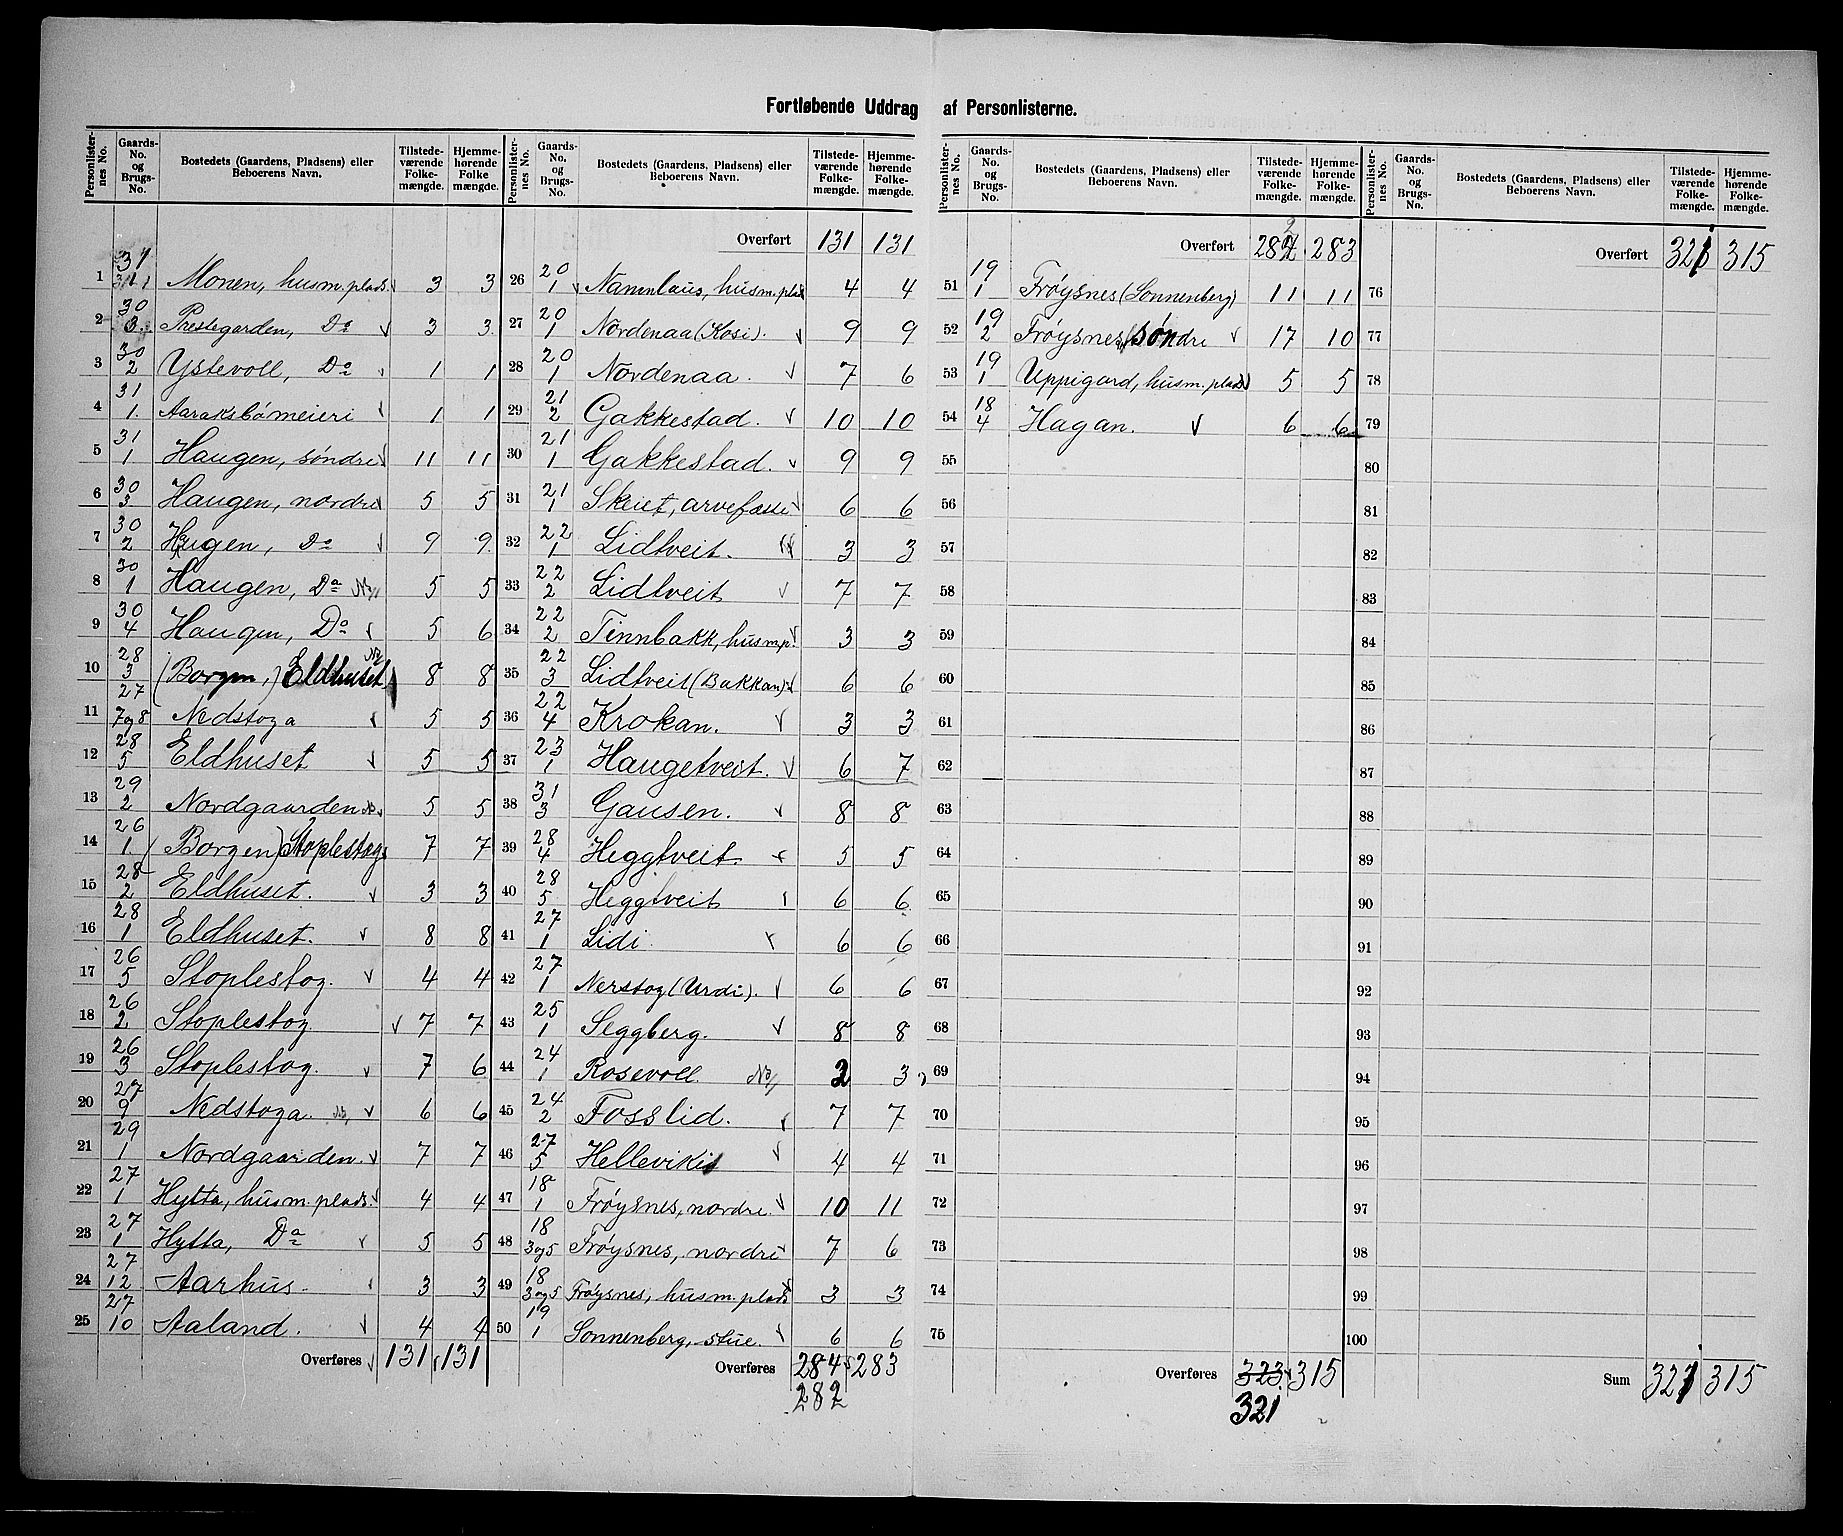 Fortløbende Uddrag af Personlisterne.
Personlister-nes No. | Gaards-No. og Brugs-No. | Bostedets (Gaardens, Pladsens) eller Beboerens Navn. | Tilstede-værende Folke-mængde. | Hjemme-hørende Folke-mængde.
1 | 31 1 | Monen, husm.plads | 3 | 3
2 | 30 3. | Prestegarden, Do | 3 | 3.
3 | 30 2 | Ystevoll, Do | 1 | 1
4 | 31 1. | Aaraksbø meieri | 1 | 1
5 | 31 1 | Haugen, søndre | 11 | 11
6 | 30 3 | Haugen, nordre | 5 | 5
7 | 30 2 | Haugen, Do | 9 | 9.
8 | 30 1 | Haugen, Do | 5 | 5
9 | 30 4 | Haugen, Do | 5 | 6
10 | 28 3 | (Borgen,) Eldhuset | 8 | 8
11 | 27 7og8 | Nedstoga | 5 | 5
12 | 28 5 | Eldhuset | 5 | 5
13 | 29 2 | Nordgaarden | 5 | 5
14 | 26 1. | (Borgen) Stoplestog | 7 | 7
15 | 28 2 | Eldhuset. | 3 | 3
16 | 28 1 | Eldhuset. | 8 | 8
17 | 26 5 | Stoplestog. | 4 | 4
18 | 26 2 | Stoplestog | 7 | 7
19 | 26 3 | Stoplestog. | 7 | 6
20 | 27 9 | Nedstoga. | 6 | 6
21 | 29 1 | Nordgaarden. | 7 | 7
22 | 27 1 | Hytta, husm.plads. | 4 | 4
23 | 27 1 | Hytta, Do | 5 | 5
24 | 27 12 | Aarhus. | 3 | 3
25 | 27 10 | Aaland. | 4 | 4
Overføres 131 131
Personlister-nes No. | Gaards-No. og Brugs-No. | Bostedets (Gaardens, Pladsens) eller Beboerens Navn. | Tilstede-værende Folke-mængde. | Hjemme-hørende Folke-mængde.
Overført 131 131
26 | 20 1 | Namnlaus, husm.plad | 4 | 4
27 | 20 1 | Nordenaa (Kosi). | 9 | 9
28 | 20 1 | Nordenaa. | 7 | 6
29 | 21 2 | Gakkestad. | 10 | 10
30 | 21 1 | Gakkestad. | 9 | 9
31 | 21 1 | Skeiet, arvefæste | 6 | 6
32 | 22 1 | Lidtveit. | 3 | 3
33 | 22 2 | Lidtveit | 7 | 7
34 | 22 2 | Tinnbakk, husmp. | 3 | 3
35 | 22 3 | Lidtveit (Bakkan) | 6 | 6
36 | 22 4 | Krokan. | 3 | 3
37 | 23 1 | Haugetveit. | 6 | 7
38 | 31 3 | Gausen. | 8 | 8
39 | 28 4 | Heggtveit | 5 | 5
40 | 28 5 | Heggtveit | 6 | 6.
41 | 27 1 | Lidi | 6 | 6
42 | 27 1 | Nerstog (Urdi). | 6 | 6
43 | 25 1 | Seggberg. | 8 | 8
44 | 24 1 | Rosevoll. | 2 | 3
45 | 24 2 | Fosslid. | 7 | 7
46 | 27 5 | Helleviki | 4 | 4
47 | 18 1 | Frøysnes, nordre. | 10 | 11
48 | 18 3og5 | Frøysnes, nordre | 7 | 6
49 | 18 3og5 | Frøysnes, husm.plads | 3 | 3
50 | 19 1 | Sonnenberg, stue. | 6 | 6
Overføres 284 283
282
Personlister-nes No. | Gaards-No. og Brugs-No. | Bostedets (Gaardens, Pladsens) eller Beboerens Navn. | Tilstede-værende Folke-mængde. | Hjemme-hørende Folke-mængde.
2
Overført 284 283
51 | 19 1 | Frøysnes (Sonnenberg) | 11 | 11
52 | 19 2 | Frøysnes, søndre | 17 | 10
53 | 19 1 | Uppigard, husm.plads | 5 | 5
54 | 18 4 | Hagan. | 6 | 6
55
56
57
58
59
60
61
62
63
64
65
66
67
68
69
70
71
72
73
74
75
Overføres 323 315
321
Personlister-nes No. | Gaards-No. og Brugs-No. | Bostedets (Gaardens, Pladsens) eller Beboerens Navn. | Tilstede-værende Folke-mængde. | Hjemme-hørende Folke-mængde.
Overført 321 315
76
77
78
79
80
81
82
83
84
85
86
87
88
89
90
91
92
93
94
95
96
97
98
99
100
Sum 321 315